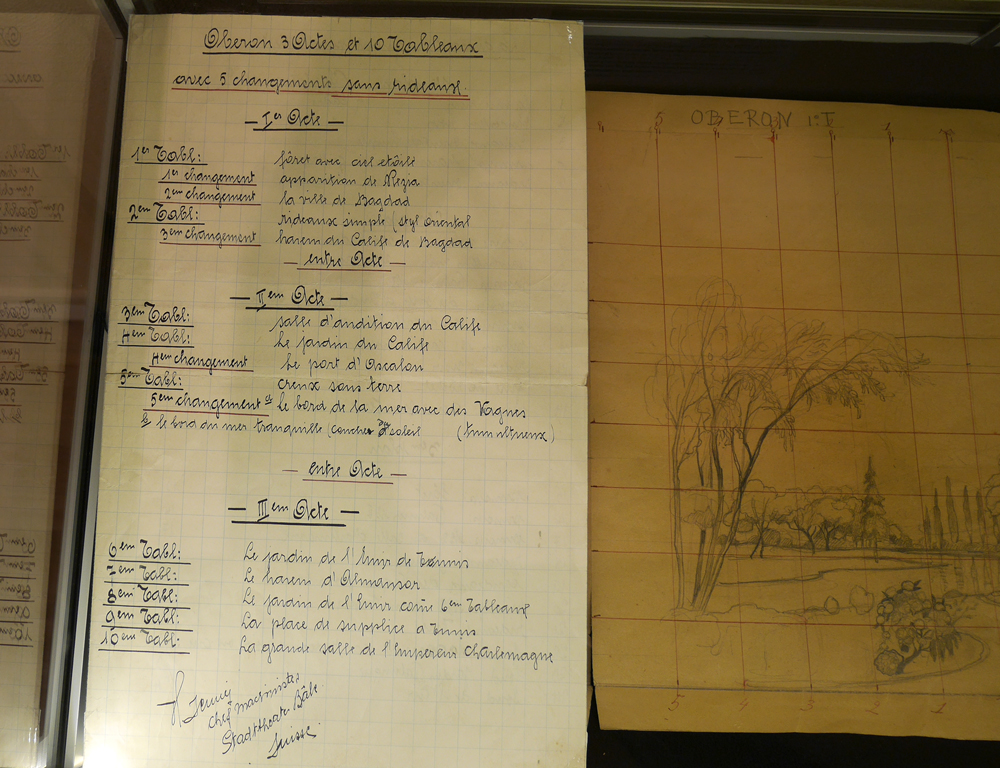 Oberon 3 Actes et 10 Tableaux
avec 5 changements sans rideaux.
— Ier Acte —
1er Tabl: fôret avec ciel etoilé
1er changement apparition de Rezia
2em changement la ville de Bagdad
2em Tabl: rideaux simple (styl oriental
3em changement harem du Calife de Bagdad
— entre Acte —
— IIem Acte —
3em Tabl: salle d'audition du Calife
4em Tabl: Le jardin du Calife
4em changement Le port d'Ascalon
5em Tabl: creux sous terre
5em changement a Le bord de la mer avec des Vagues
(tumultueux)
b le bord du mer tranquille (coucher du soleil
— entre Acte —
— IIIem Acte —
6em Tabl: Le jardin de l'Emir de Tounis
7em Tabl: Le harem d'Almansor
8em Tabl: Le jardin de l'Emir com 6em Tableaux
9em Tabl: La place de supplice a Tunis
10em Tabl: La grande salle de l'Empereur Charlemagne
Jenny
Chef machiniste
Stadttheater Bâle
Suisse
OBERON 1:I
5 4 3 2 1